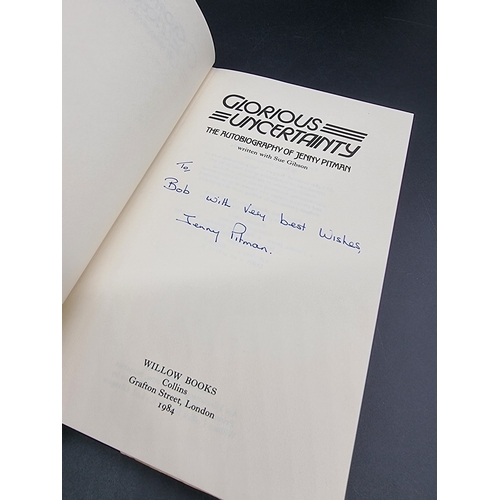 GLORIOUS
UNCERTAINTY
THE AUTOBIOGRAPHY OF JENNY PITMAN
written with Sue Gibson
To,
Bob with very best Wishes,
Jenny Pitman.
WILLOW BOOKS
Collins
Grafton Street, London
1984